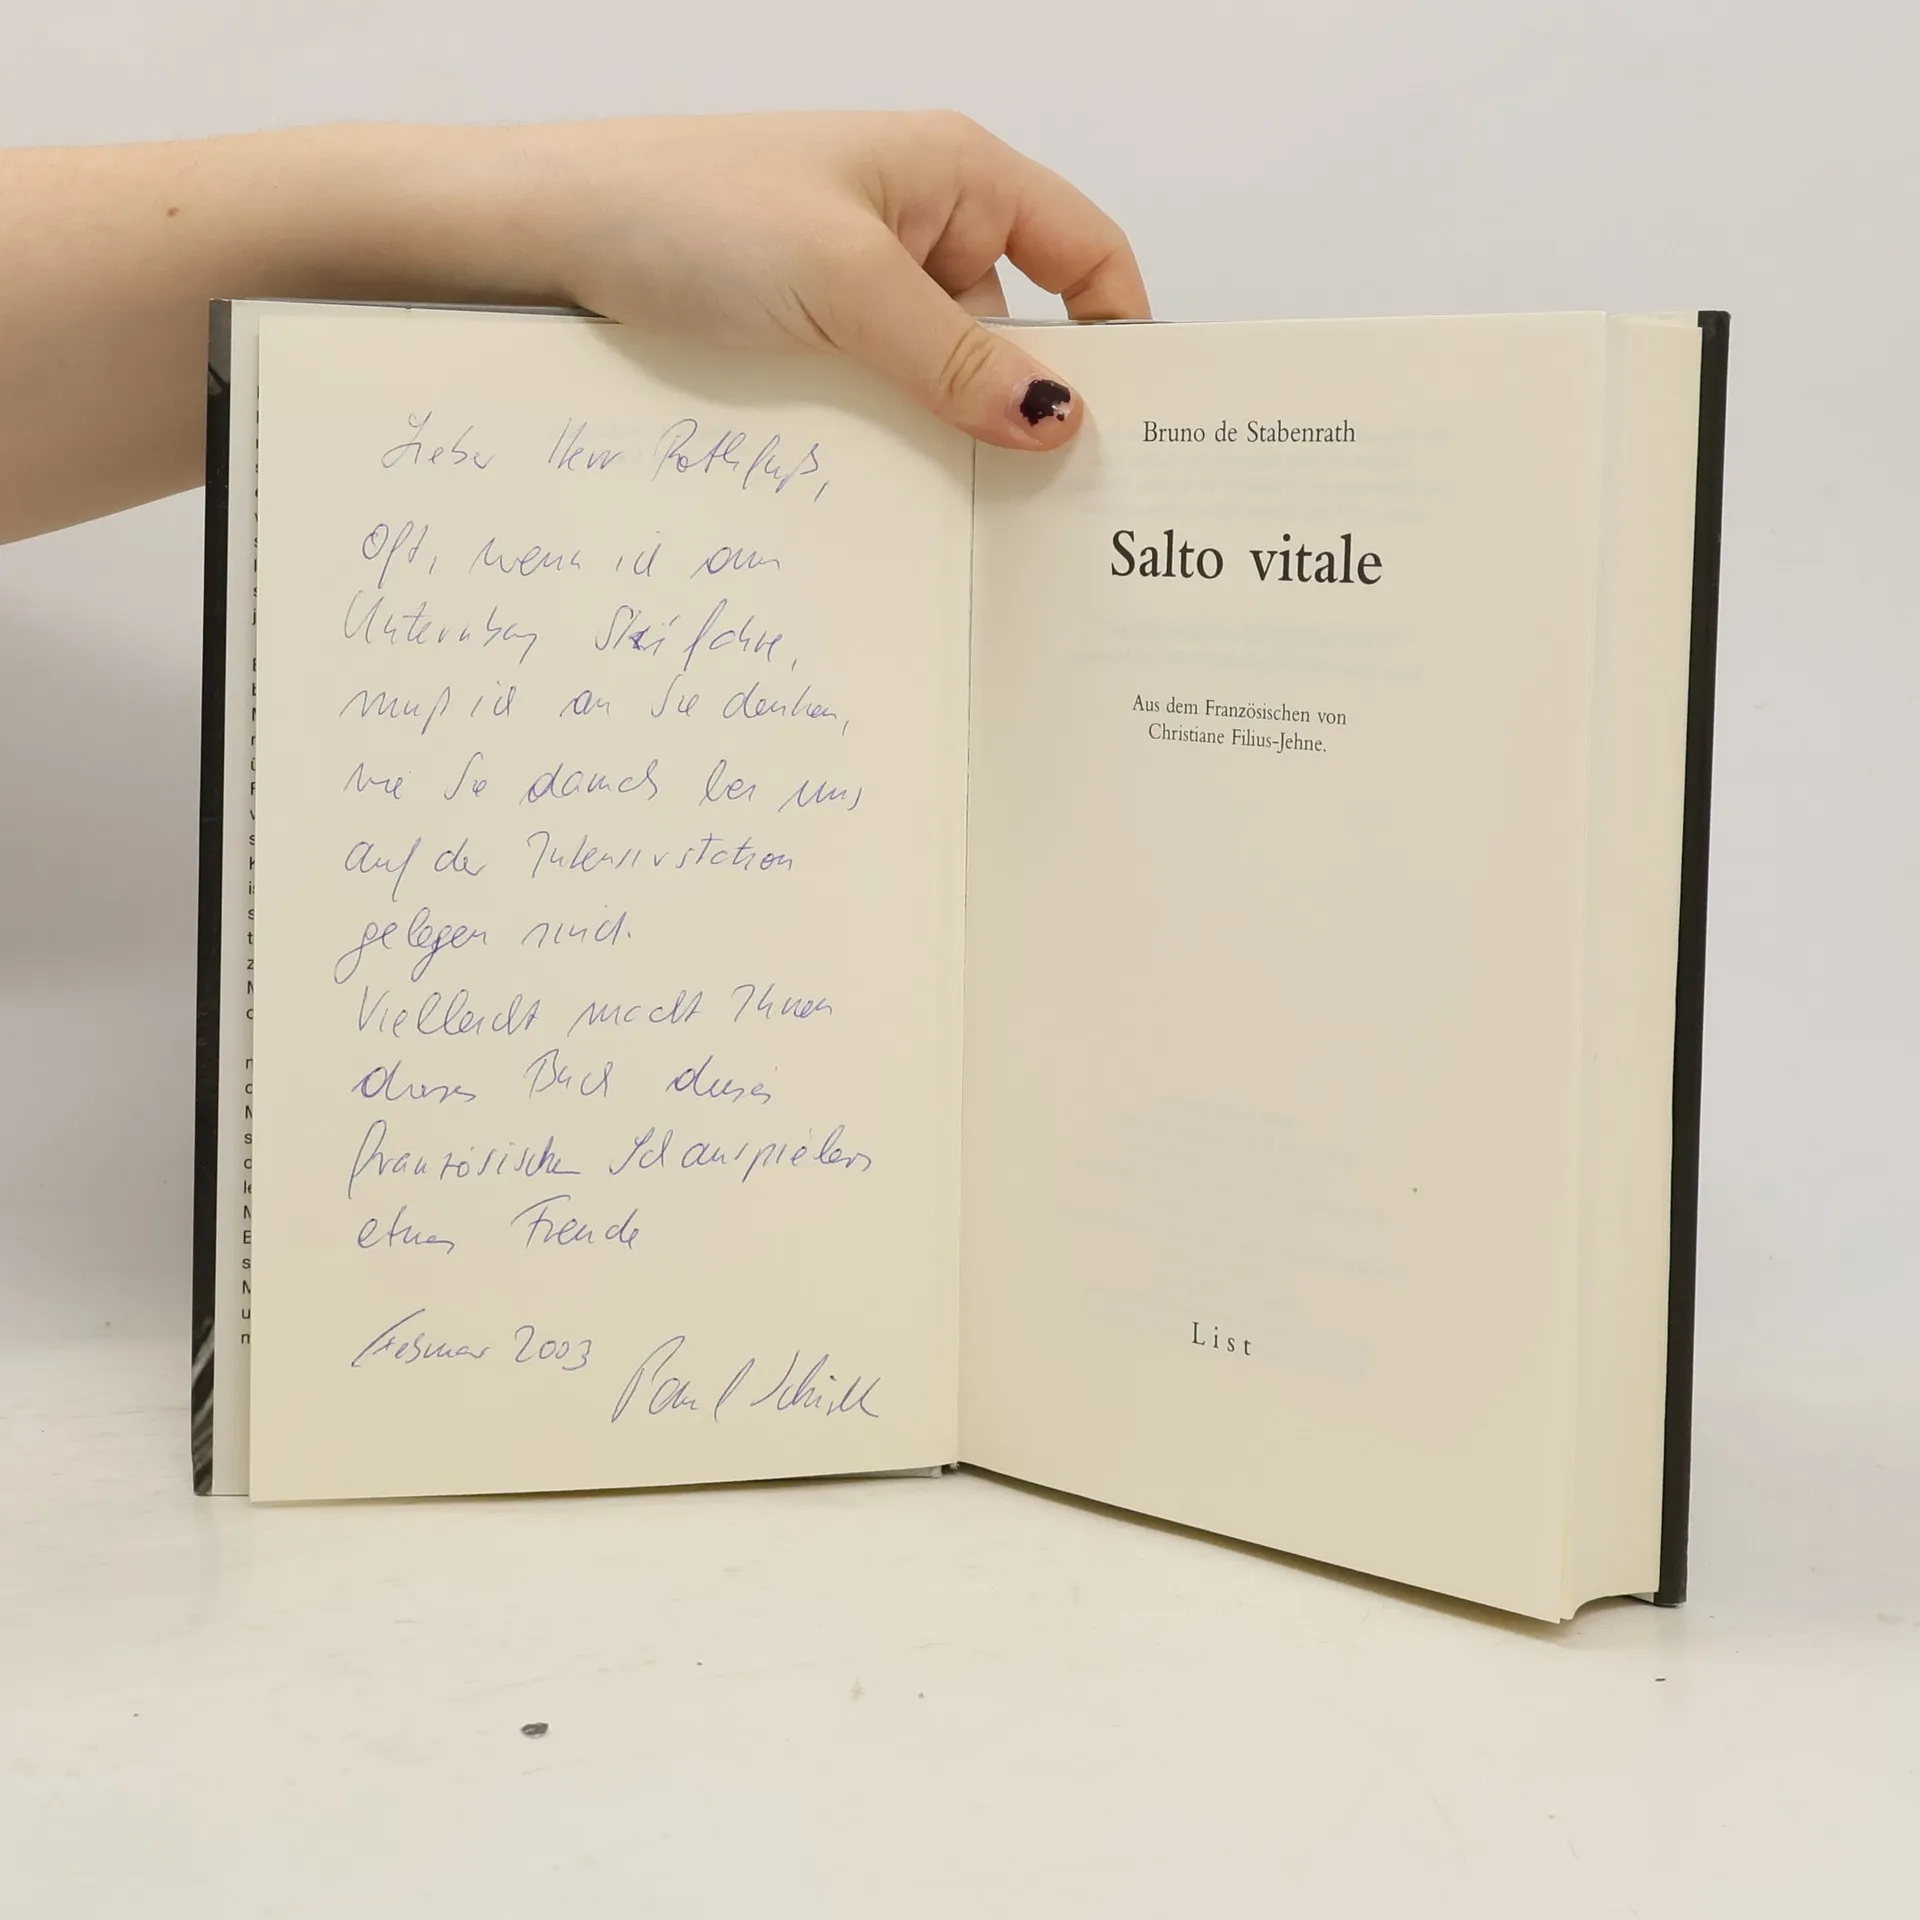 Lieber Herr Rothfuß,
Oft, wenn ich am
Unternberg Ski fahre,
muß ich an Sie denken,
wie Sie damals bei uns
auf der Intensivstation
gelegen sind.
Vielleicht macht Ihnen
dieses Buch dieses
französischen Schauspielers
etwas Freude
Februar 2003
Paul
Bruno de Stabenrath
Salto vitale
Aus dem Französischen von
Christiane Filius-Jehne.
List